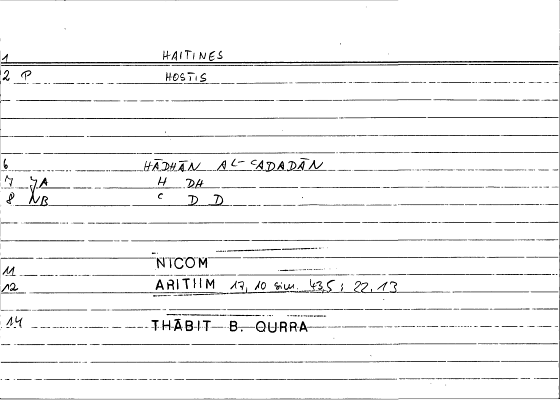 1 HAITINES
2 P HOSTIS
6 HĀDHĀN AL-ʿADADĀN
7 YA H DH
8 NB ʿ D D
11 NICOM
12 ARITIIM 17, 10 sim. 43,5; 22,13
14 THĀBIT B. QURRA